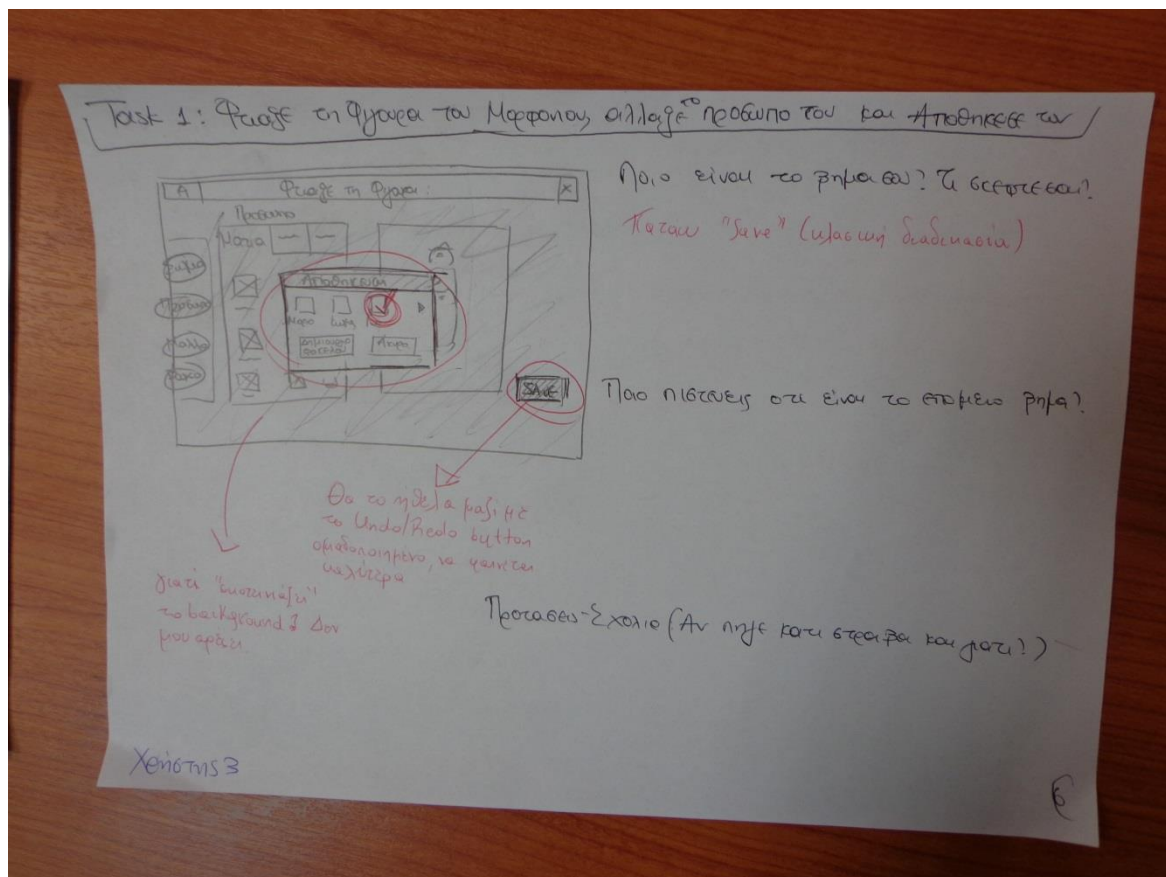 Task 1: Φτιαξε τη Φιγουρα του Μορφονιου, αλλαξε το προσωπο του και Αποθηκευσε τον
Α Φτιαξε τη Φιγουρα: X
Προσωπο
Ματια
Προσωπο
Μαλλια
Αποθηκευση
Δημιουργια φακελου
Ακυρο
SAVE
Ποιο ειναι το βημα σου? Τι σκεπτεσαι?
Παταω "Save" (κλασική διαδικασία)
Ποιο πιστευεις οτι ειναι το επομενο βημα?
Θα το ήθελα μαζί με
το Undo/Redo button
ομαδοποιημένο, να φαινεται
καλύτερα
γιατί "σκοτεινιάζει"
το background? Δεν
μου αρέσει
Προτασεις-Σχολια (Αν πηγε κατι στραβα και γιατι?)
Χρήστης 3
6